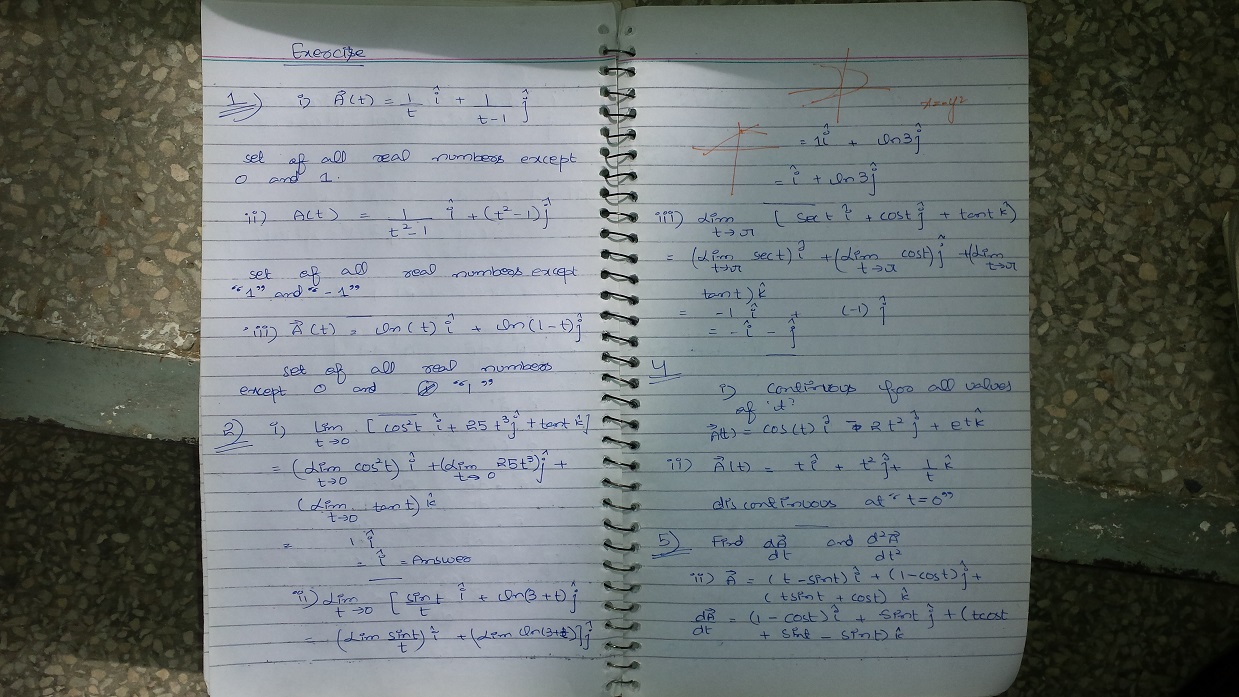 Exercise
1) i) A⃗(t) = 1/t î + 1/(t-1) ĵ
set of all real numbers except
0 and 1.
ii) A(t) = 1/(t²-1) î + (t²-1) ĵ
set of all real numbers except
"1" and "-1"
iii) A⃗(t) = ln(t) î + ln(1-t) ĵ
set of all real numbers
except 0 and "1"
2) i) Lim t→0 [cos²t î + 25t³ ĵ + tant k̂]
= (Lim t→0 cos²t) î + (Lim t→0 25t³) ĵ +
(Lim t→0 tant) k̂
= 1 î
= î = Answer
ii) Lim t→0 [sint/t î + ln(3+t) ĵ
= (Lim sint/t) î + (Lim ln(3+t)] ĵ
x=-y²
= 1î + ln3 ĵ
= î + ln3 ĵ
iii) Lim t→π [sect î + cost ĵ + tant k̂)
= (Lim t→π sect) î + (Lim t→π cost) ĵ + (Lim t→π
tant) k̂
= -1 î + (-1) ĵ
= -î - ĵ
4
i) continuous for all values
of 't'
A⃗(t) = cos(t) î 2t² ĵ + etk̂
ii) A⃗(t) = t î + t² ĵ + 1/t k̂
discontinuous at "t=0"
5) Find dA⃗/dt and d²A⃗/dt²
ii) A⃗ = (t-sint) î + (1-cost) ĵ +
(tsint + cost) k̂
dA⃗/dt = (1 - cost) î + sint ĵ + (tcost
+ sint - sint) k̂